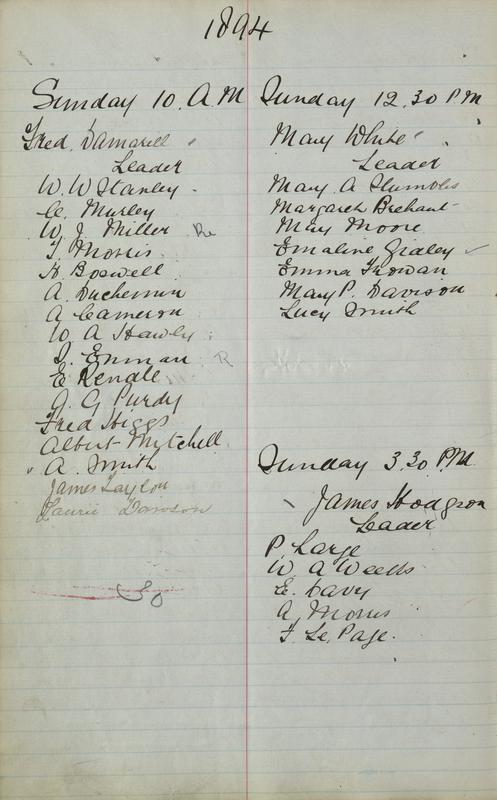 1894
Sunday 10. A.M
Fred. Damarell
Leader
W. W Stanley
C. Murley
W. J. Miller Re
T. Morris
H. Boswell
A. Duchemin
A Cameron
W A Hawly
I. Enman R
E Rendle
A. G Purdy
Fred Higgs
Albert Mytchell
" A. Smith
James Taylor
Laurie Dawson
Sunday 12.30 P.M
Mary White
Leader
Mary A Stumbles
Margaret Brehaut
May Moore
Emaline Gidley
Emma Trowan
Mary P. Davison
Lucy Smith
Sunday 3.30 P.M.
James Hodgson
Leader
P. Large
W. A Weeks
E. Davy
A. Morris
F. Le. Page.